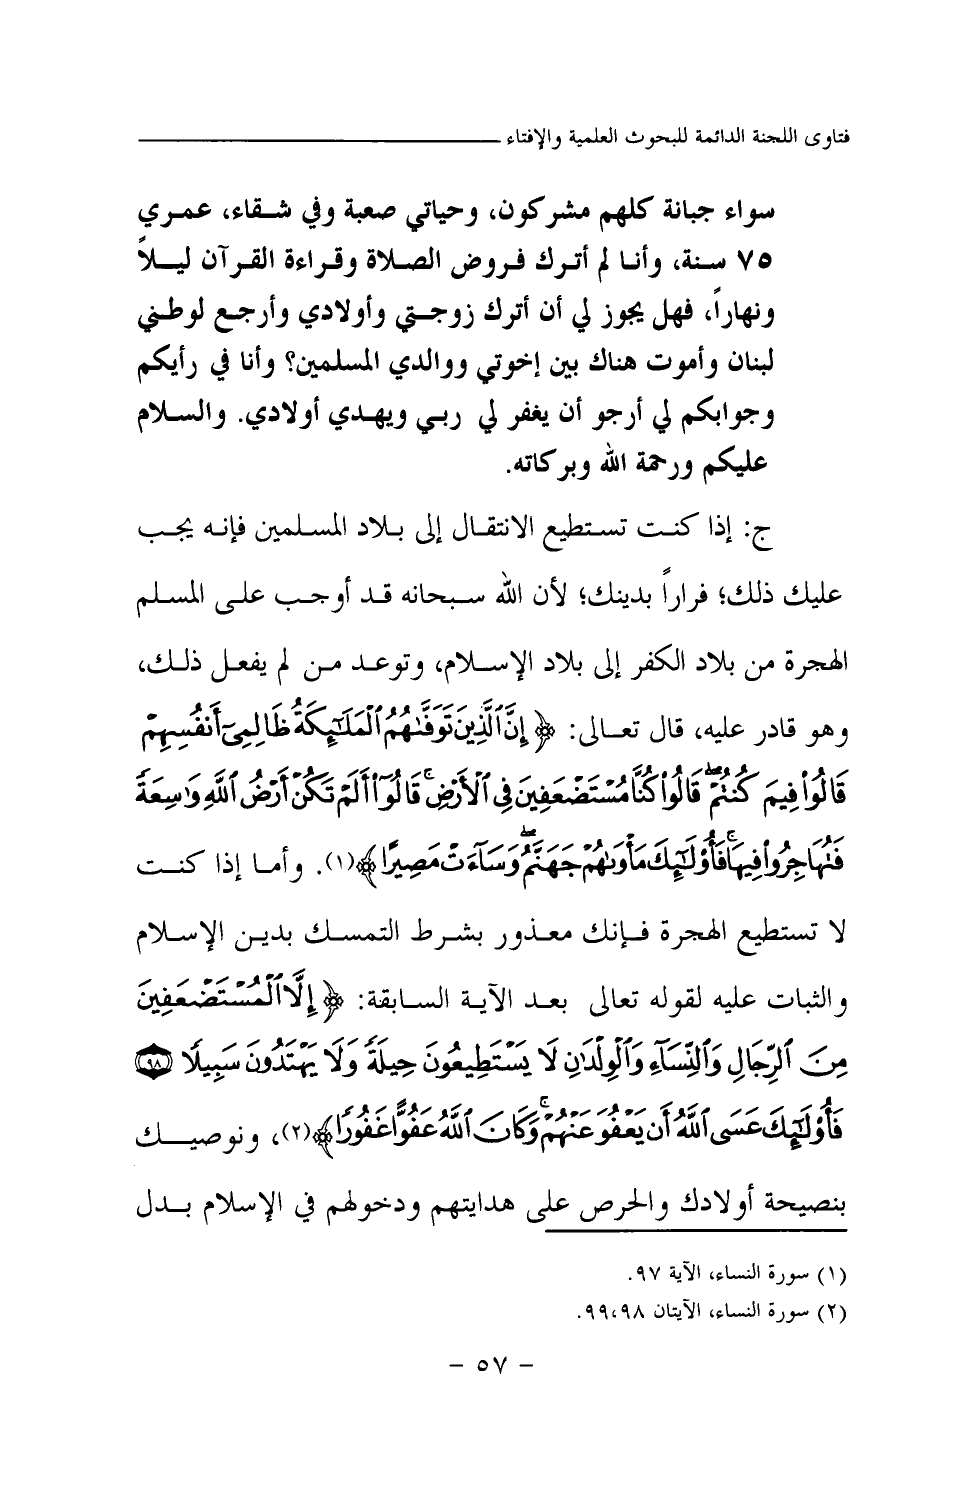 فتاوى اللجنة الدائمة للبحوث العلمية والإفتاء
سواء جبانة كلهم مشركون، وحياتي صعبة وفي شقاء، عمري
٧٥ سنة، وأنا لم أترك فروض الصلاة وقراءة القرآن ليلاً
ونهاراً، فهل يجوز لي أن أترك زوجتي وأولادي وأرجع لوطني
لبنان وأموت هناك بين إخوتي ووالدي المسلمين؟ وأنا في رأيكم
وجوابكم لي أرجو أن يغفر لي ربي ويهدي أولادي. والسلام
عليكم ورحمة الله وبركاته.
ج: إذا كنت تستطيع الانتقال إلى بلاد المسلمين فإنه يجب
عليك ذلك؛ فراراً بدينك؛ لأن الله سبحانه قد أوجب على المسلم
الهجرة من بلاد الكفر إلى بلاد الإسلام، وتوعد من لم يفعل ذلك،
وهو قادر عليه، قال تعالى: ﴿إِنَّ ٱلَّذِينَ تَوَفَّىٰهُمُ ٱلْمَلَٰٓئِكَةُ ظَالِمِىٓ أَنفُسِهِمْ
قَالُوا۟ فِيمَ كُنتُمْ ۖ قَالُوا۟ كُنَّا مُسْتَضْعَفِينَ فِى ٱلْأَرْضِ ۚ قَالُوٓا۟ أَلَمْ تَكُنْ أَرْضُ ٱللَّهِ وَٰسِعَةً
فَتُهَاجِرُوا۟ فِيهَا ۚ فَأُو۟لَٰٓئِكَ مَأْوَىٰهُمْ جَهَنَّمُ ۖ وَسَآءَتْ مَصِيرًا﴾(١). وأما إذا كنت
لا تستطيع الهجرة فإنك معذور بشرط التمسك بدين الإسلام
والثبات عليه لقوله تعالى بعد الآية السابقة: ﴿إِلَّا ٱلْمُسْتَضْعَفِينَ
مِنَ ٱلرِّجَالِ وَٱلنِّسَآءِ وَٱلْوِلْدَٰنِ لَا يَسْتَطِيعُونَ حِيلَةً وَلَا يَهْتَدُونَ سَبِيلًا ۝٩٨
فَأُو۟لَٰٓئِكَ عَسَى ٱللَّهُ أَن يَعْفُوَ عَنْهُمْ ۚ وَكَانَ ٱللَّهُ عَفُوًّا غَفُورًا﴾(٢)، ونوصيك
بنصيحة أولادك والحرص على هدايتهم ودخولهم في الإسلام بدل
(١) سورة النساء، الآية ٩٧.
(٢) سورة النساء، الآيتان ٩٨،٩٩.
- ٥٧ -